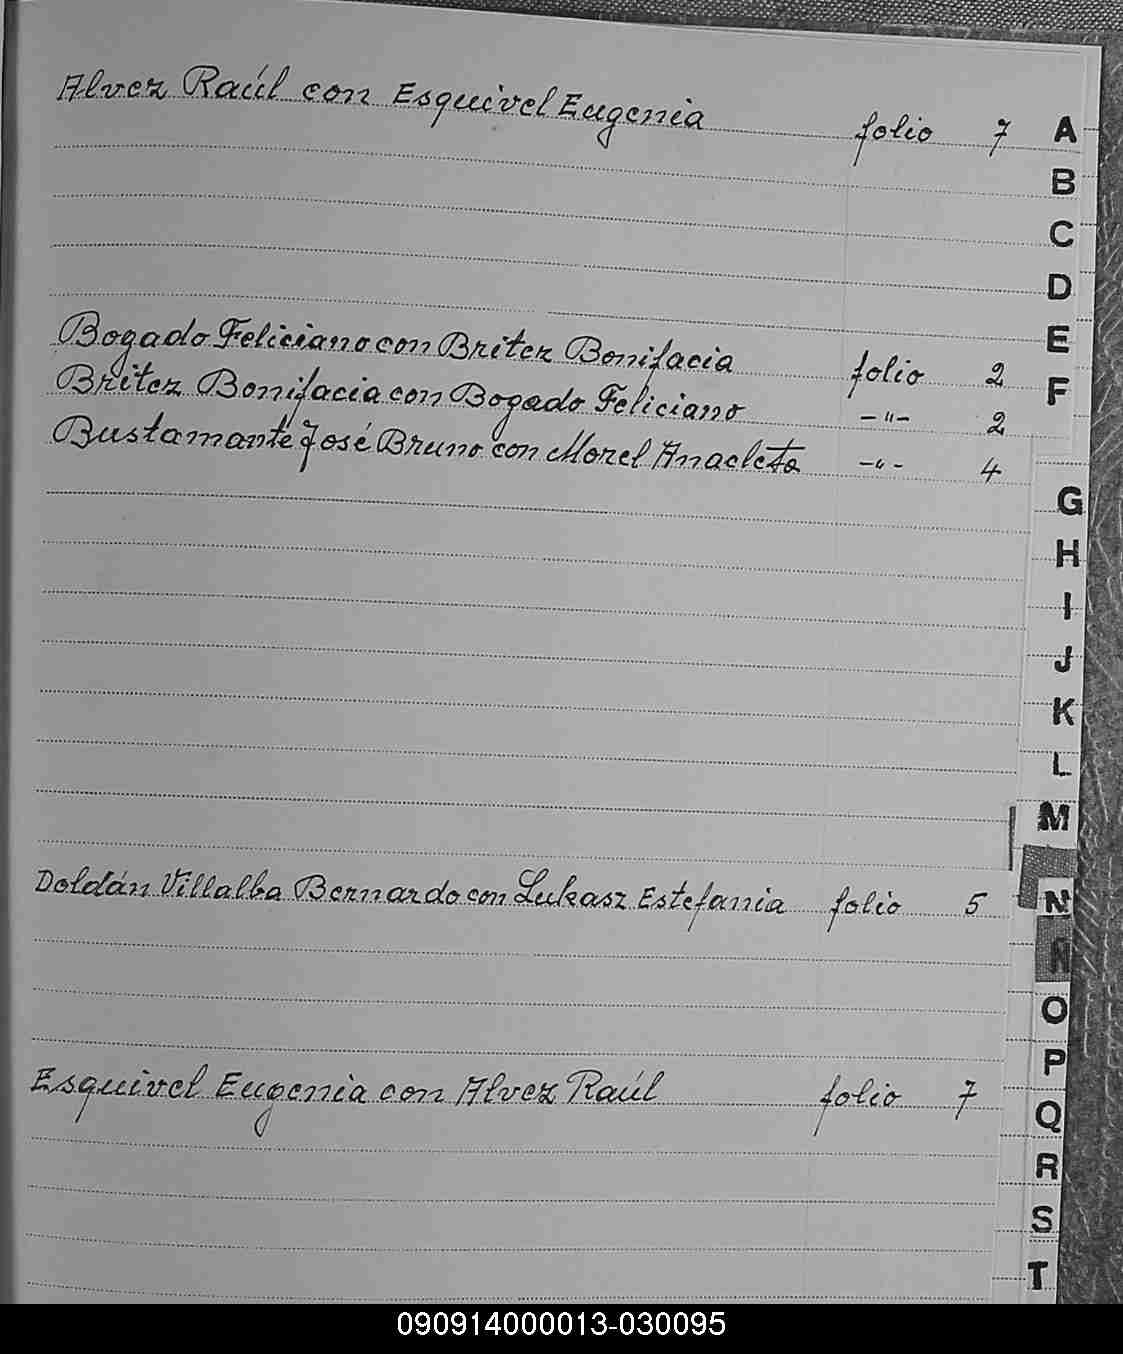 Alvez Raúl con Esquivel Eugenia folio 7
Bogado Feliciano con Britez Bonifacia folio 2
Britez Bonifacia con Bogado Feliciano -"- 2
Bustamante José Bruno con Morel Anacleta -"- 4
Doldán Villalba Bernardo con Lukasz Estefania folio 5
Esquivel Eugenia con Alvez Raúl folio 7
A
B
C
D
E
F
G
H
I
J
K
L
M
N
Ñ
O
P
Q
R
S
T
090914000013-030095